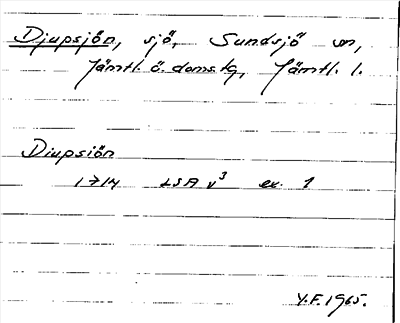 Djupsjön, sjö, Sundsjö sn,
Jämtl. ö. doms.tg, Jämtl. l.
Diupsiön
1714 LSA v³ ex. 1
Y.F. 1965.